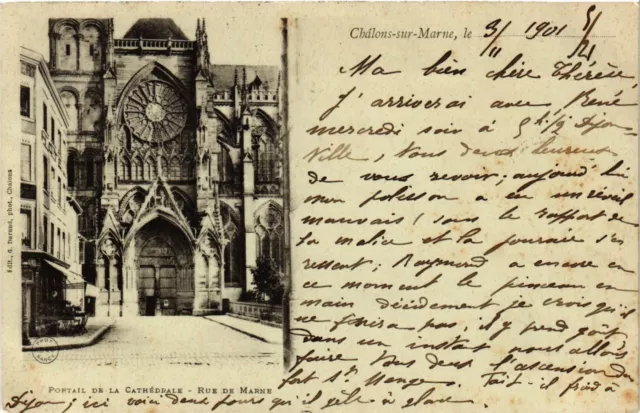 Châlons-sur-Marne, le 3/11 1901
Ma bien chère Thérèse,
J'arriverai avec René
mercredi soir à 5h 1/2 Dijon
Ville, Vous
de vous revoir; aujourd'hui
mon polisson a eu un réveil
mauvais (sous le rapport de
la malice et la journée s'en
ressent; Raymond a encore en
ce moment le pinceau en
main décidément je crois qu'il
ne finira pas, il y prend goût
dans un instant nous allons
faire tous deux l'ascension du
fort St Menge. Fait-il froid à
Dijon; ici voici deux fois qu'il gèle à glace.
Édit., G. Durand, phot., Chalons
PORTAIL DE LA CATHÉDRALE - RUE DE MARNE